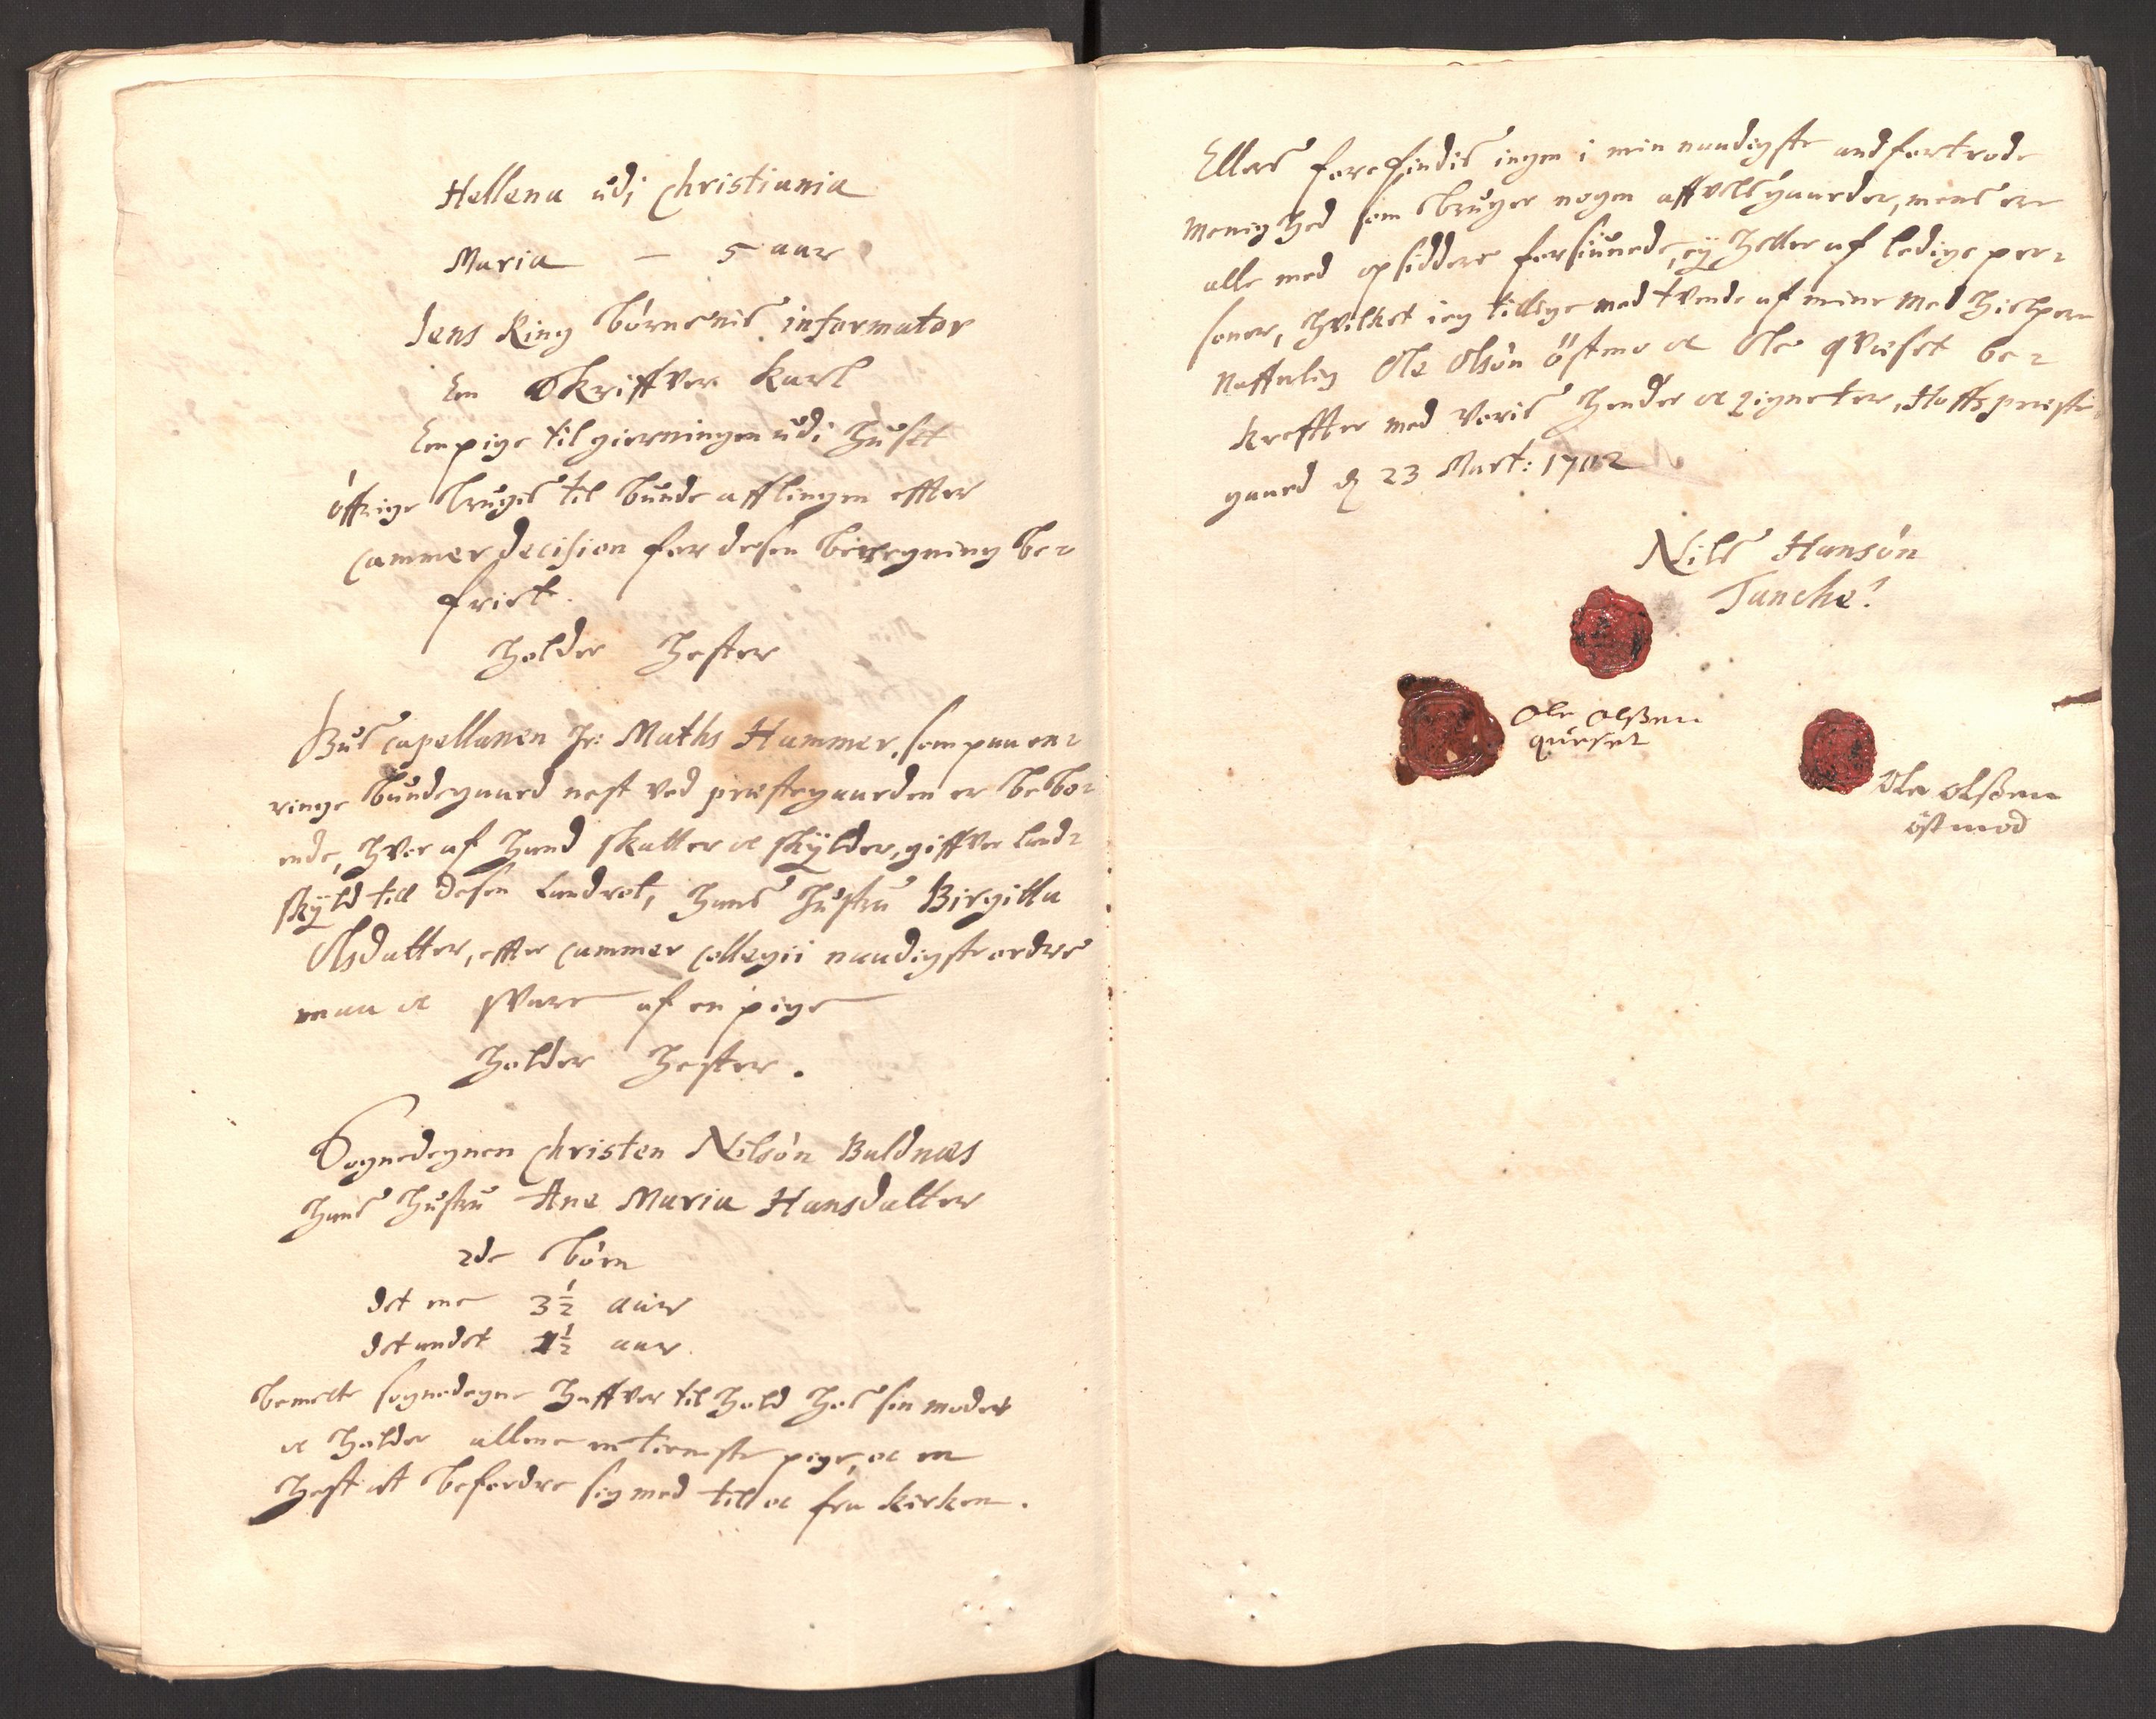 Hellena udj Christiania
Maria — 5 aar
Jens Ring børnenis informator
En Skriffver Karl
En pige til gierningen udi huset
øffrige bruges til bunde afflingen effter
Cammer Decision for desen beregning be-
friet.
holder hester
Huscapellanen Hr: Maths Hammer, som paa en
ringe bundegaard nest ved præstegaarden er bebo-
ende, hvor af hand skatter oc skylder, giffver land-
skyld till desen Landrot, hans hustru Birgitta
Olsdatter, effter Cammer Collegii naadigste ordre
maa oc svare af en pige
holder hester.
Sognedegnen Christen Nilsøn Baldnæs
hans hustru Ane Maria Hansdatter
2de børn
det ene 3½ aar
det andet 1½ aar.
bemelte sognedegne haffver tilhold hos sin moder
oc holder allene en tieneste pige, oc en
hest at befordre sig med til oc fra kirken.
Ellers forefindis ingen i min naadigste anfortrode
menighed som bruger nogen affvelsgaarder, mens ere
alle med opsiddere forsiunede, ey heller af ledige per-
soner, hvilket ieg tillige med tvende af mine Medhielpere
Naffnlig Ole Olsøn Östmo oc Ole qvæset be-
kreffter med voris hender oc zigneter, Hoffs præste-
gaard d 23 Mart: 1702
Nils Hansøn
Tanche.
Ole Olßen
quæset
Ole Olßen
östmod